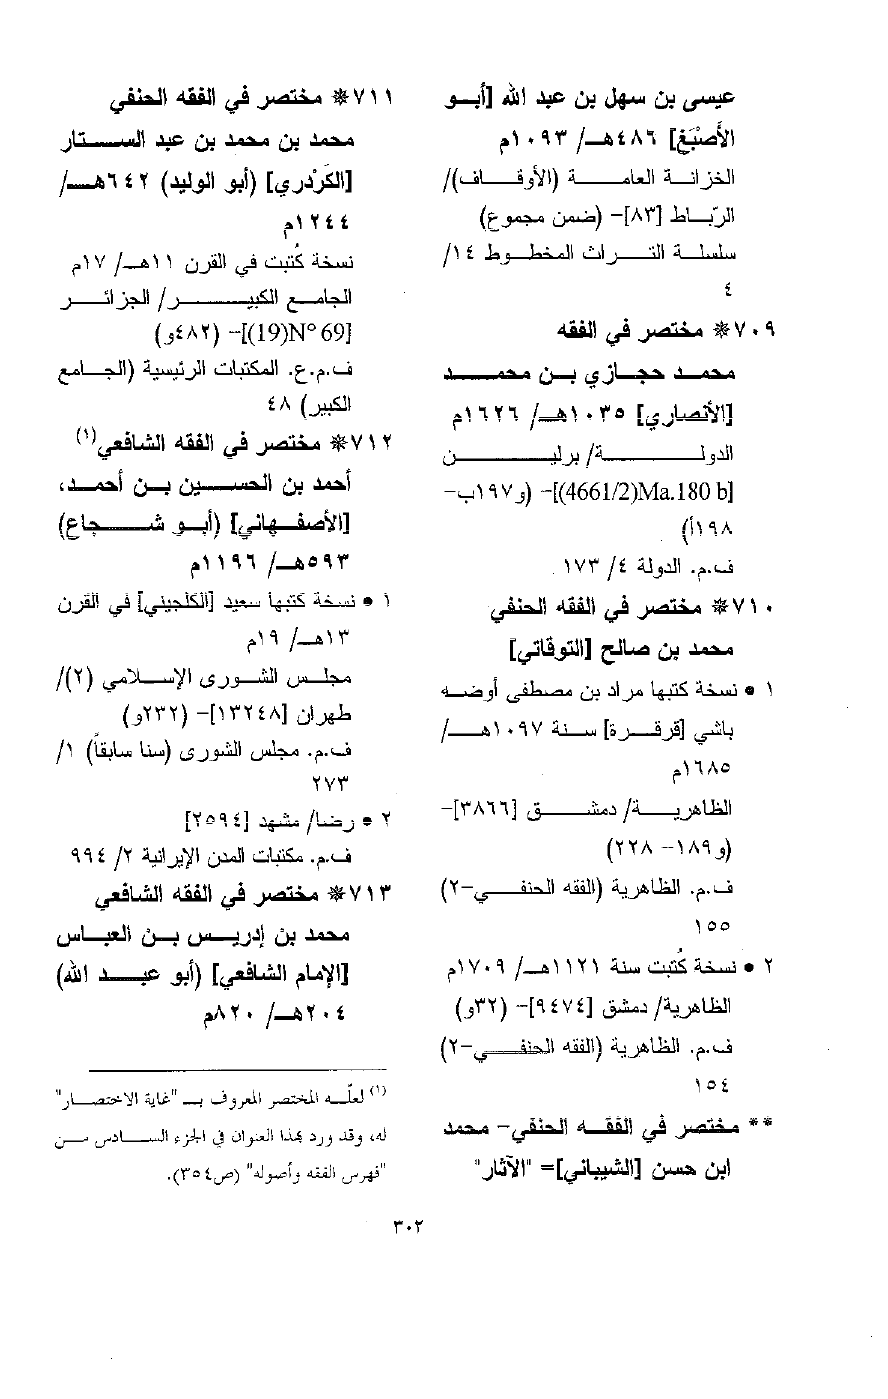 عيسى بن سهل بن عبد الله [أبو
الأَصْبَغ] ٤٨٦هـ/ ١٠٩٣م
الخزانة العامة (الأوقاف)/
الرّباط [٨٣]- (ضمن مجموع)
سلسلة التراث المخطوط ١٤/
٤
٧٠٩* مختصر في الفقه
محمد حجازي بن محمد
[الأنصاري] ١٠٣٥هـ/ ١٦٢٦م
الدولة/ برلين
[Ma.180 b(4661/2)]- (و١٩٧ب-
١٩٨أ)
ف.م. الدولة ٤/ ١٧٣
٧١٠* مختصر في الفقه الحنفي
محمد بن صالح [التوقاتي]
١ • نسخة كتبها مراد بن مصطفى أوضه
باشي [قرقرة] سنة ١٠٩٧هـ/
١٦٨٥م
الظاهرية/ دمشق [٣٨٦٦]-
(و١٨٩- ٢٢٨)
ف.م. الظاهرية (الفقه الحنفي-٢)
١٥٥
٢ • نسخة كُتبت سنة ١١٢١هـ/ ١٧٠٩م
الظاهرية/ دمشق [٩٤٧٤]- (٣٢و)
ف.م. الظاهرية (الفقه الحنفي-٢)
١٥٤
** مختصر في الفقه الحنفي- محمد
ابن حسن [الشيباني]= "الآثار"
٧١١* مختصر في الفقه الحنفي
محمد بن محمد بن عبد الستار
[الكَرْدري] (أبو الوليد) ٦٤٢هـ/
١٢٤٤م
نسخة كُتبت في القرن ١١هـ/ ١٧م
الجامع الكبير/ الجزائر
[(19)N° 69]- (٤٨٢و)
ف.م.ع. المكتبات الرئيسية (الجامع
الكبير) ٤٨
٧١٢* مختصر في الفقه الشافعي(١)
أحمد بن الحسين بن أحمد،
[الأصفهاني] (أبو شجاع)
٥٩٣هـ/ ١١٩٦م
١ • نسخة كتبها سعيد [الكلجيني] في القرن
١٣هـ/ ١٩م
مجلس الشورى الإسلامي (٢)/
طهران [١٣٢٤٨]- (٢٣٢و)
ف.م. مجلس الشورى (سنا سابقاً) ١/
٢٧٣
٢ • رضا/ مشهد [٢٥٩٤]
ف.م. مكتبات المدن الإيرانية ٢/ ٩٩٤
٧١٣* مختصر في الفقه الشافعي
محمد بن إدريس بن العباس
[الإمام الشافعي] (أبو عبد الله)
٢٠٤هـ/ ٨٢٠م
(١) لعلّه المختصر المعروف بـ "غاية الاختصار"
له، وقد ورد بهذا العنوان في الجزء السادس من
"فهرس الفقه وأصوله" (ص٣٥٤).
٣٠٢